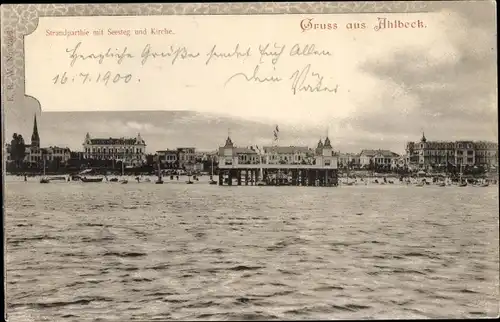 Strandparthie mit Seesteg und Kirche.
Gruss aus Ahlbeck.
Herzliche Grüße sendet Euch Allen
16.7.1900 Dein Väter